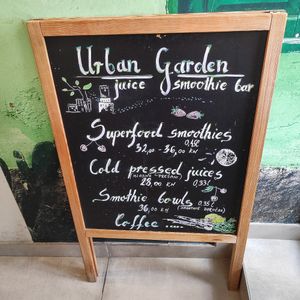 Urban Garden
juice smoothie bar
Superfood smoothies
32,00 - 36,00 KN 0,45l
Cold pressed juices
28,00 KN 0,33l
Smothie bowls
36,00 KN
Coffee ....